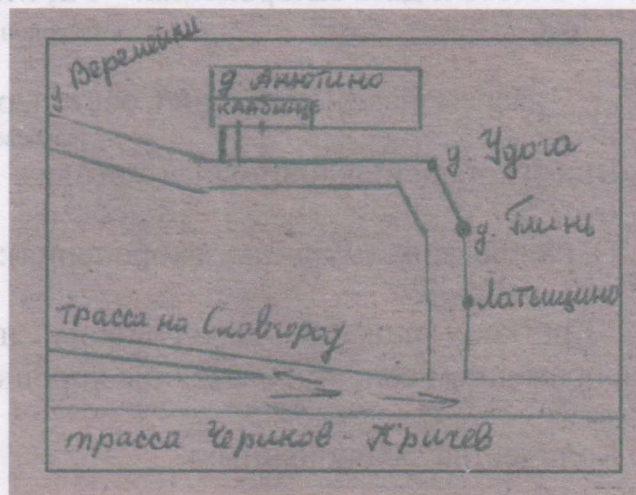 д Веремейки
д Анютино
кладбище
д. Удога
д. Глинь
Латыщино
трасса на Славгород
трасса Чериков - Кричев